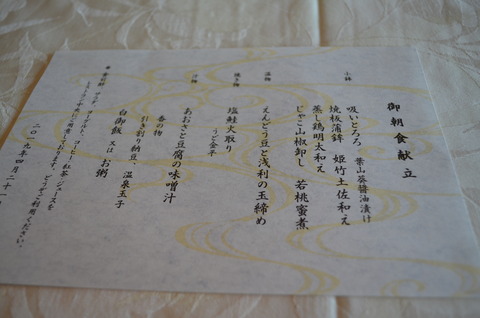 御朝食献立
小鉢
吸いとろろ 葉山葵醤油漬け
焼板蒲鉾 姫竹土佐和え
蒸し鶏明太和え
じゃこ山椒卸し 若桃蜜煮
温物
えんどう豆と浅利の玉締め
焼き物
塩鮭火取り
うど金平
汁物
あおさと豆腐の味噌汁
香の物
引き割り納豆 温泉玉子
白御飯 又は お粥
どうぞご利用ください。
二〇一九年四月二十一